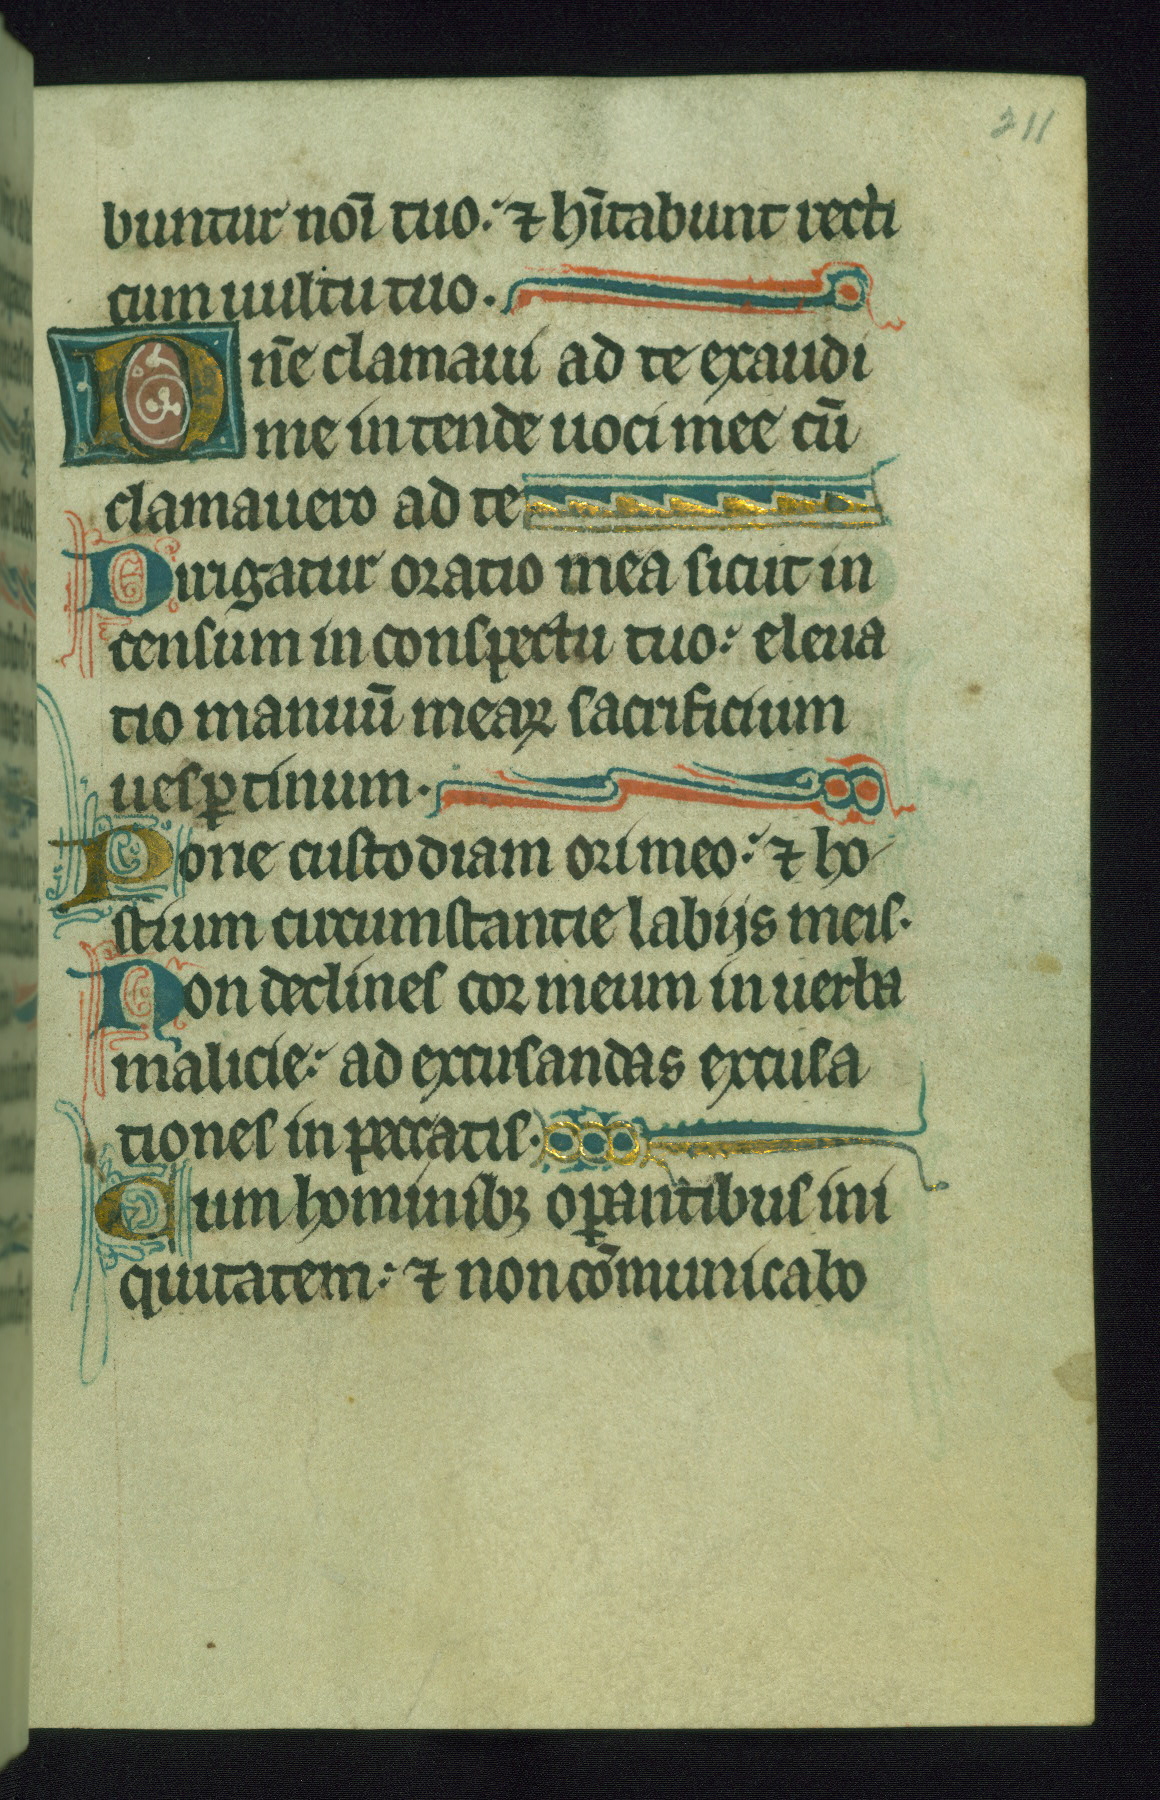 211
buntur nōi tuo: ⁊ hītabunt recti
cum uultu tuo.
Dn̄e clamaui ad te exaudi
me intende uoci mee cū
clamauero ad te
Dirigatur oratio mea sicut in
censum in conspectu tuo: eleua
tio manuū meaꝝ sacrificium
uesꝑtinum.
Pone custodiam ori meo: ⁊ ho
stium circumstantie labijs meis.
Non declines cor meum in uerba
malicie: ad excusandas excusa
tiones in peccatis.
Cum hominibꝫ oꝑantibus ini
quitatem: ⁊ non cōmunicabo